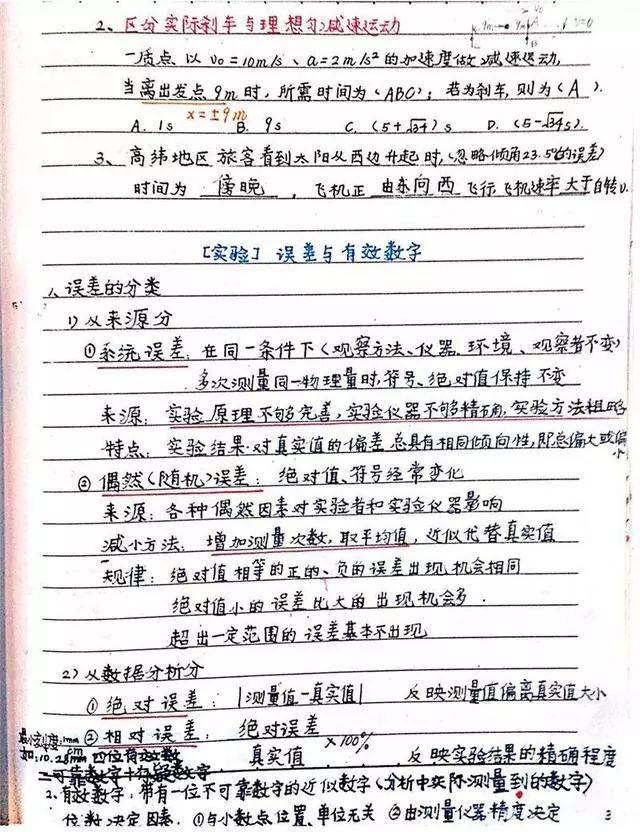 2、区分实际刹车与理想匀减速运动
一质点以v₀=10m/s、a=2m/s²的加速度做减速运动,
当离出发点9m时,所需时间为(ABC);若为刹车,则为(A).
x=±9m
A. 1s B. 9s C. (5+√34)s D. (5-√34s).
3、高纬地区旅客看到太阳从西边升起时,(忽略倾角23.5°的误差)
时间为 傍晚 ,飞机正 由东向西 飞行飞机速率大于自转v.
[实验] 误差与有效数字
1、误差的分类
1) 从来源分
①系统误差:在同一条件下(观察方法、仪器、环境、观察者不变)
多次测量同一物理量时,符号、绝对值保持不变
来源:实验原理不够完善,实验仪器不够精确,实验方法粗略
特点:实验结果对真实值的偏差总具有相同倾向性,即总偏大或偏小
②偶然(随机)误差:绝对值、符号经常变化
来源:各种偶然因素对实验者和实验仪器影响
减小方法:增加测量次数,取平均值,近似代替真实值
规律:绝对值相等的正的、负的误差出现机会相同
绝对值小的误差比大的出现机会多.
超出一定范围的误差基本不出现
2) 从数据分析分
①绝对误差:|测量值-真实值| 反映测量值偏离真实值大小
最小刻度:1mm ②相对误差:绝对误差
真实值 ×100%. 反映实验结果的精确程度
如:10.28cm 四位有效数
=可靠数字+
2、有效数字:带有一位不可靠数字的近似数字(分析中实际测量到的数字)
位数决定因素:①与小数点位置、单位无关 ②由测量仪器精度决定
3